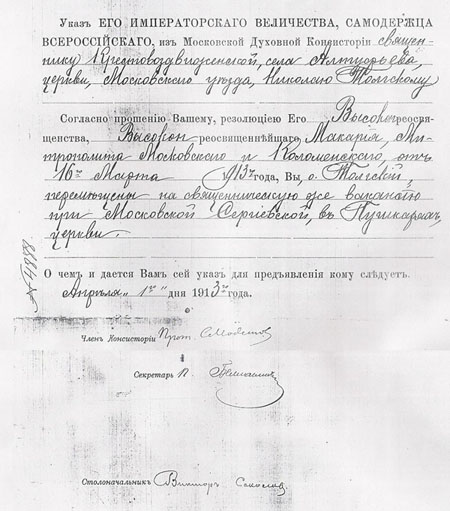 Указъ ЕГО ИМПЕРАТОРСКАГО ВЕЛИЧЕСТВА, САМОДЕРЖЦА
ВСЕРОССІЙСКАГО, изъ Московской Духовной Консисторіи священ-
нику Крестовоздвиженской, села Алтуфьева,
церкви, Московскаго уѣзда, Николаю Толгскому
Согласно прошенію Вашему, резолюціею Его Высокопреосвя-
щенства, Высокопреосвященнѣйшаго Макарія, Ми-
трополита Московскаго и Коломенскаго, отъ
16го Марта 1913го года, Вы, о. Толгскій,
перемѣщены на священническую же вакансію
при Московской Сергіевской, въ Пушкаряхъ,
церкви.
№ 4888
О чемъ и дается Вамъ сей указъ для предъявленія кому слѣдуетъ.
Апрѣля „1го" дня 1913го года.
Членъ Консисторіи Прот.
Секретарь П.
Столоначальникъ Викторъ